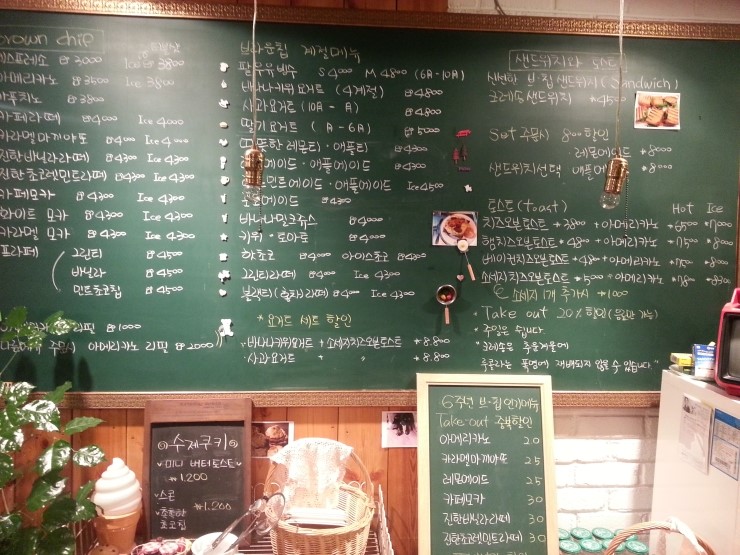 brown chip
에스프레소 3000 Ice 3800
아메리카노 3500 Ice 3800
카푸치노 3800
카페라떼 4000 Ice 4000
카라멜마끼아또 4000 Ice 4000
진한바닐라라떼 4300 Ice 4300
진한초코렌민트라떼 4300 Ice 4300
카페모카 4300 Ice 4300
화이트 모카 4300 Ice 4300
카라멜 모카 4300 Ice 4300
프라페
그린티 4500
바닐라 4500
민트초코칩 4500
리필 1000
주문시 아메리카노 리필 2000
브라운칩 계절메뉴
팥우유빙수 S 4000 M 4800 (6A-10A)
바나나키위요거트 (4계절) 4800
사과요거트 (10A - A) 4800
딸기요거트 ( A - 6A) 5000
따뜻한 레몬티·애플티 4300
에이드·애플에이드 4300
민트에이드·애플에이드 Ice 4500
에이드 4300
바나나밀크쥬스 4000
키위·토마토 4000
핫초코 4000 아이스초코 4300
그린티라떼 4000 Ice 4300
블랙티(홍차)라떼 4000 Ice 4300
*요거트 세트 할인
·바나나키위요거트 + 소세지치즈오븐토스트 *8.800
·사과요거트 + 〃 *8.800
샌드위치와 토스트
신선한 브·칩 샌드위치 (Sandwich)
크레송 샌드위치 4500
Set 주문시 800 할인
·레몬에이드 8000
샌드위치선택 애플에이드 8000
토스트 (toast) Hot Ice
치즈오븐토스트 3800 + 아메리카노 6500 7000
햄치즈오븐토스트 4800 + 아메리카노 7500 8000
베이컨치즈오븐토스트 4800 + 아메리카노 7500 8000
소세지치즈오븐토스트 5000 + 아메리카노 7800 8300
소세지 1개 추가시 +1000
·Take out 20% 할인 (음료만 가능)
*주일은 쉽니다
"크레송은 추운겨울에
푸르른 특명에 재배되지 않을 수 있습니다."
수제쿠키
미니 버터토스트
₩1.200
스콘
촉촉한 초코칩
₩1.200
6주년 브·칩 인기메뉴
Take-out 중복할인
아메리카노 2.0
카라멜마끼아또 2.5
레몬에이드 2.5
카페모카 3.0
진한바닐라라떼 3.0
진한초코렌민트라떼 3.0